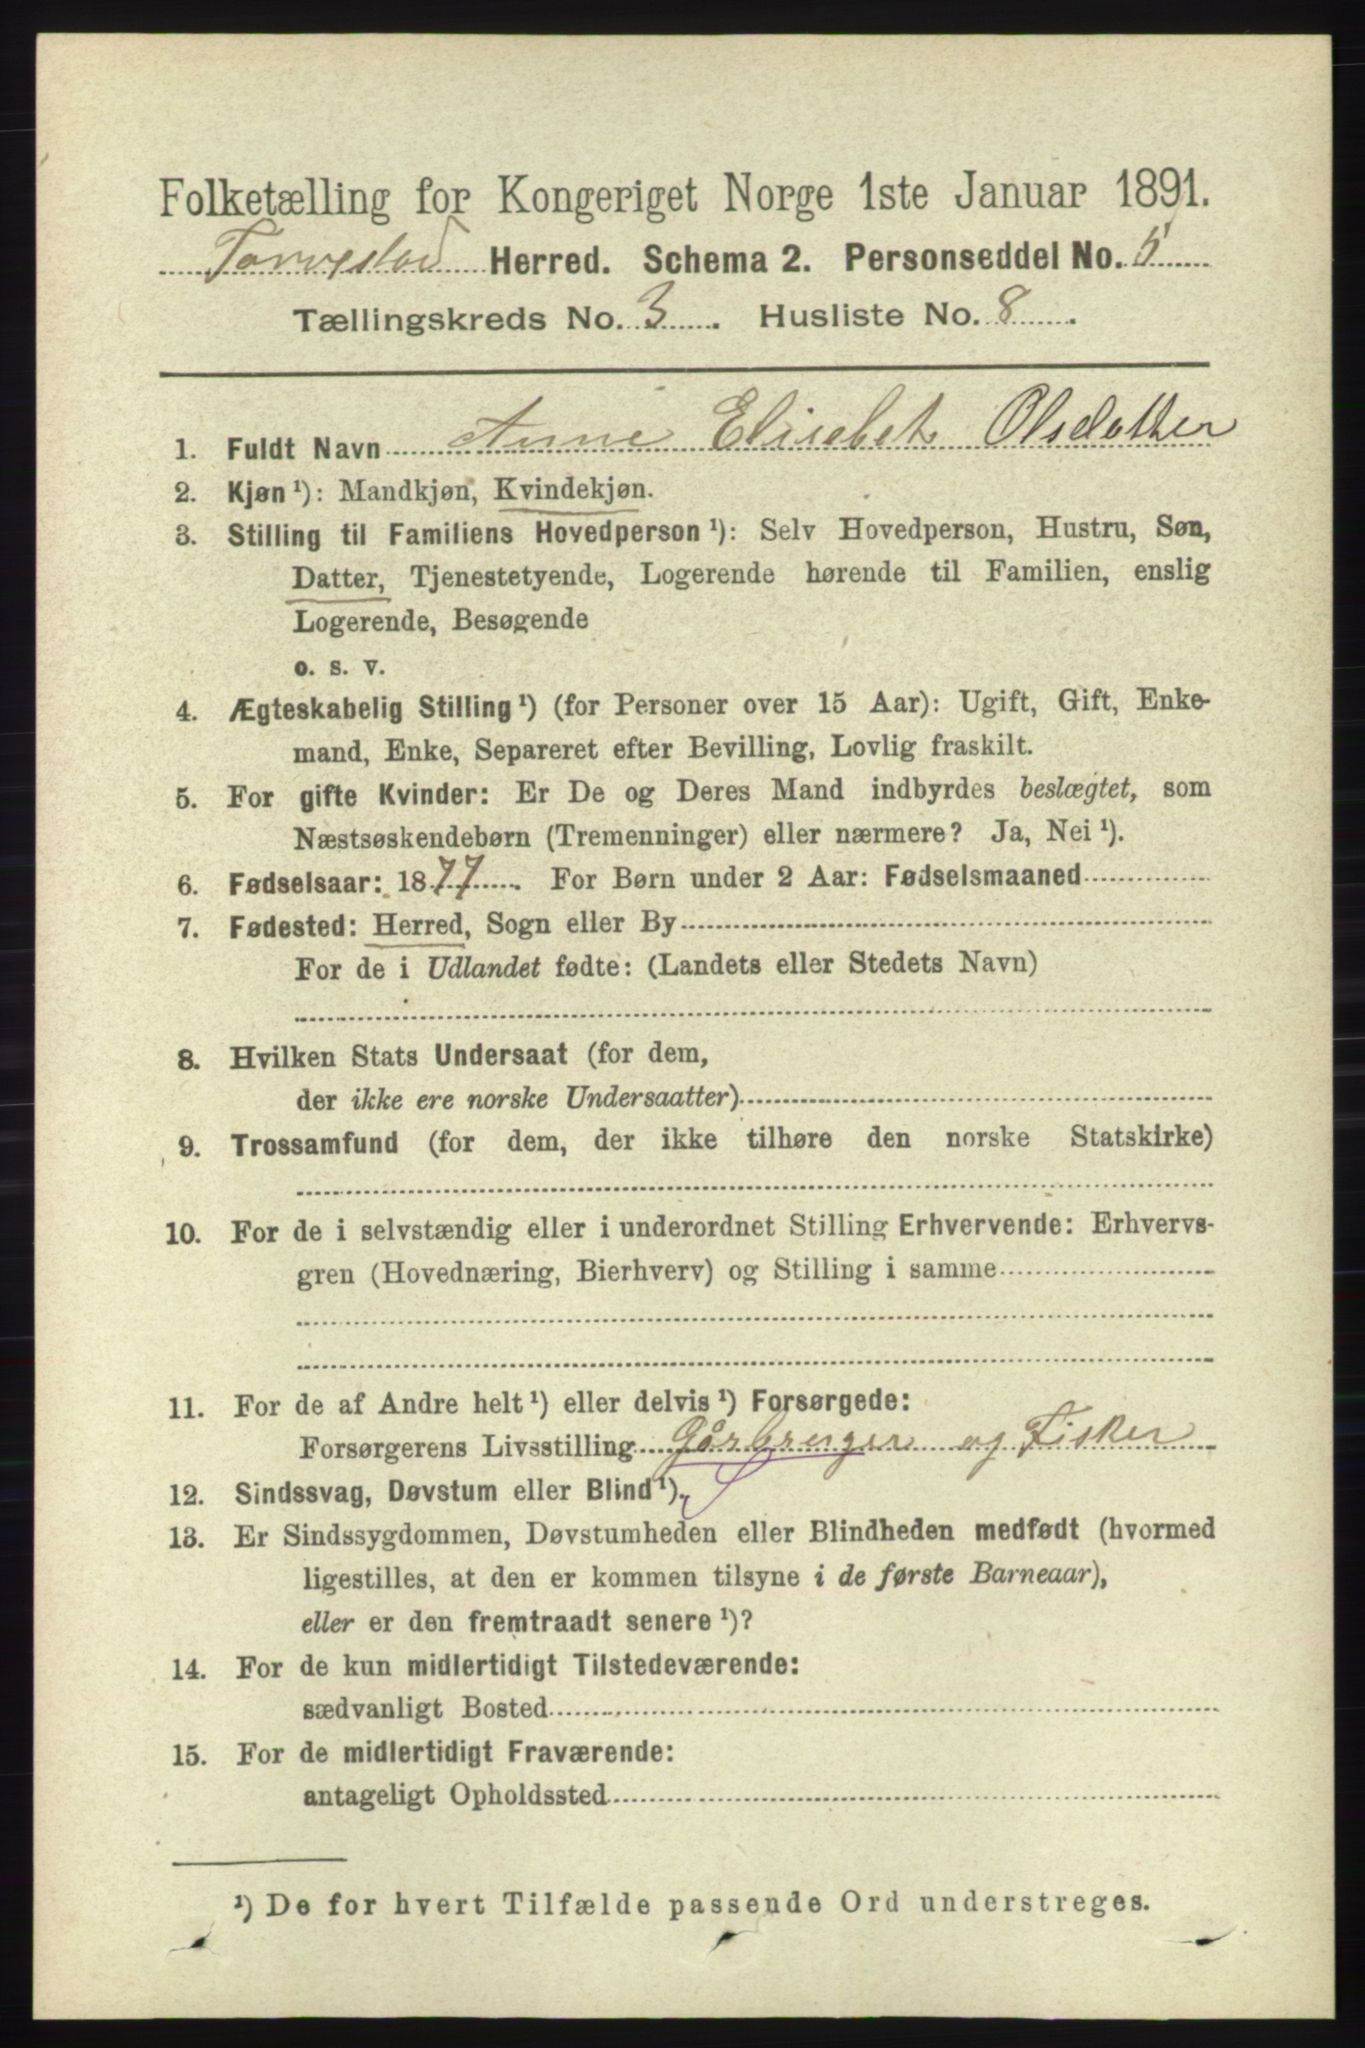 Folketælling for Kongeriget Norge 1ste Januar 1891.
Torvestad Herred. Schema 2. Personseddel No. 5
Tællingskreds No. 3. Husliste No. 8.
1. Fuldt Navn Anne Elisabet Olsdatter
2. Kjøn¹): Mandkjøn, Kvindekjøn.
3. Stilling til Familiens Hovedperson¹): Selv Hovedperson, Hustru, Søn,
Datter, Tjenestetyende, Logerende hørende til Familien, enslig
Logerende, Besøgende
o. s. v.
4. Ægteskabelig Stilling¹) (for Personer over 15 Aar): Ugift, Gift, Enke-
mand, Enke, Separeret efter Bevilling, Lovlig fraskilt.
5. For gifte Kvinder: Er De og Deres Mand indbyrdes beslægtet, som
Næstsøskendebørn (Tremenninger) eller nærmere? Ja, Nei¹).
6. Fødselsaar: 1877. For Børn under 2 Aar: Fødselsmaaned
7. Fødested: Herred, Sogn eller By
For de i Udlandet fødte: (Landets eller Stedets Navn)
8. Hvilken Stats Undersaat (for dem,
der ikke ere norske Undersaatter)
9. Trossamfund (for dem, der ikke tilhøre den norske Statskirke)
10. For de i selvstændig eller i underordnet Stilling Erhvervende: Erhvervs-
gren (Hovednæring, Bierhverv) og Stilling i samme
11. For de af Andre helt¹) eller delvis¹) Forsørgede:
Forsørgerens Livsstilling Gårbruger og Fisker
12. Sindssvag, Døvstum eller Blind¹).
13. Er Sindssygdommen, Døvstumheden eller Blindheden medfødt (hvormed
ligestilles, at den er kommen tilsyne i de første Barneaar),
eller er den fremtraadt senere¹)?
14. For de kun midlertidigt Tilstedeværende:
sædvanligt Bosted
15. For de midlertidigt Fraværende:
antageligt Opholdssted
¹) De for hvert Tilfælde passende Ord understreges.